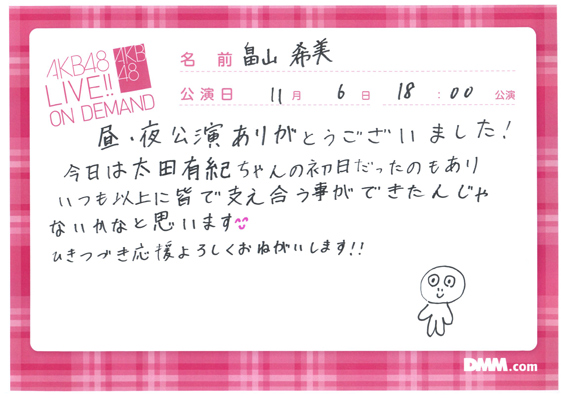 AKB48
LIVE!!
ON DEMAND
AKB
48
名 前 畠山 希美
公演日 11月 6日 18:00 公演
昼・夜公演ありがとうございました!
今日は太田有紀ちゃんの初日だったのもあり
いつも以上に皆で支え合う事ができたんじゃ
ないかなと思います
ひきつづき応援よろしくおねがいします!!
DMM.com